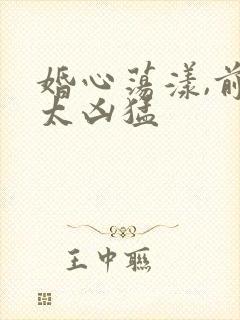 婚心荡漾,前
太凶猛
王中联